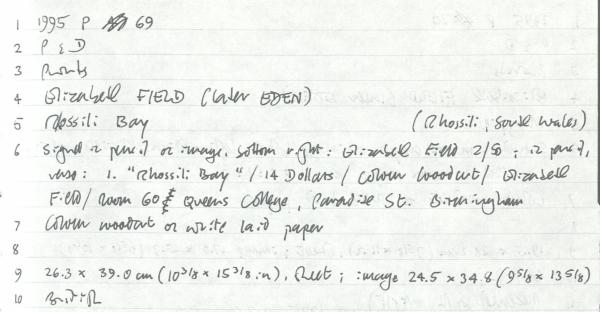 1 1995 P 69
2 P & D
3 Prints
4 Elizabeth FIELD (later EDEN)
5 Rhossili Bay (Rhossili, South Wales)
6 Signed in pencil on image, bottom right: Elizabeth Field 2/50; in pencil,
verso: 1. "Rhossili Bay" / 14 Dollars / Colour woodcut / Elizabeth
Field / Room 60 Queens College, Paradise St. Birmingham
7 Colour woodcut on white laid paper
8
9 26.3 x 39.0 cm (10 3/8 x 15 3/8 in), sheet; image 24.5 x 34.8 (9 5/8 x 13 5/8)
10 British